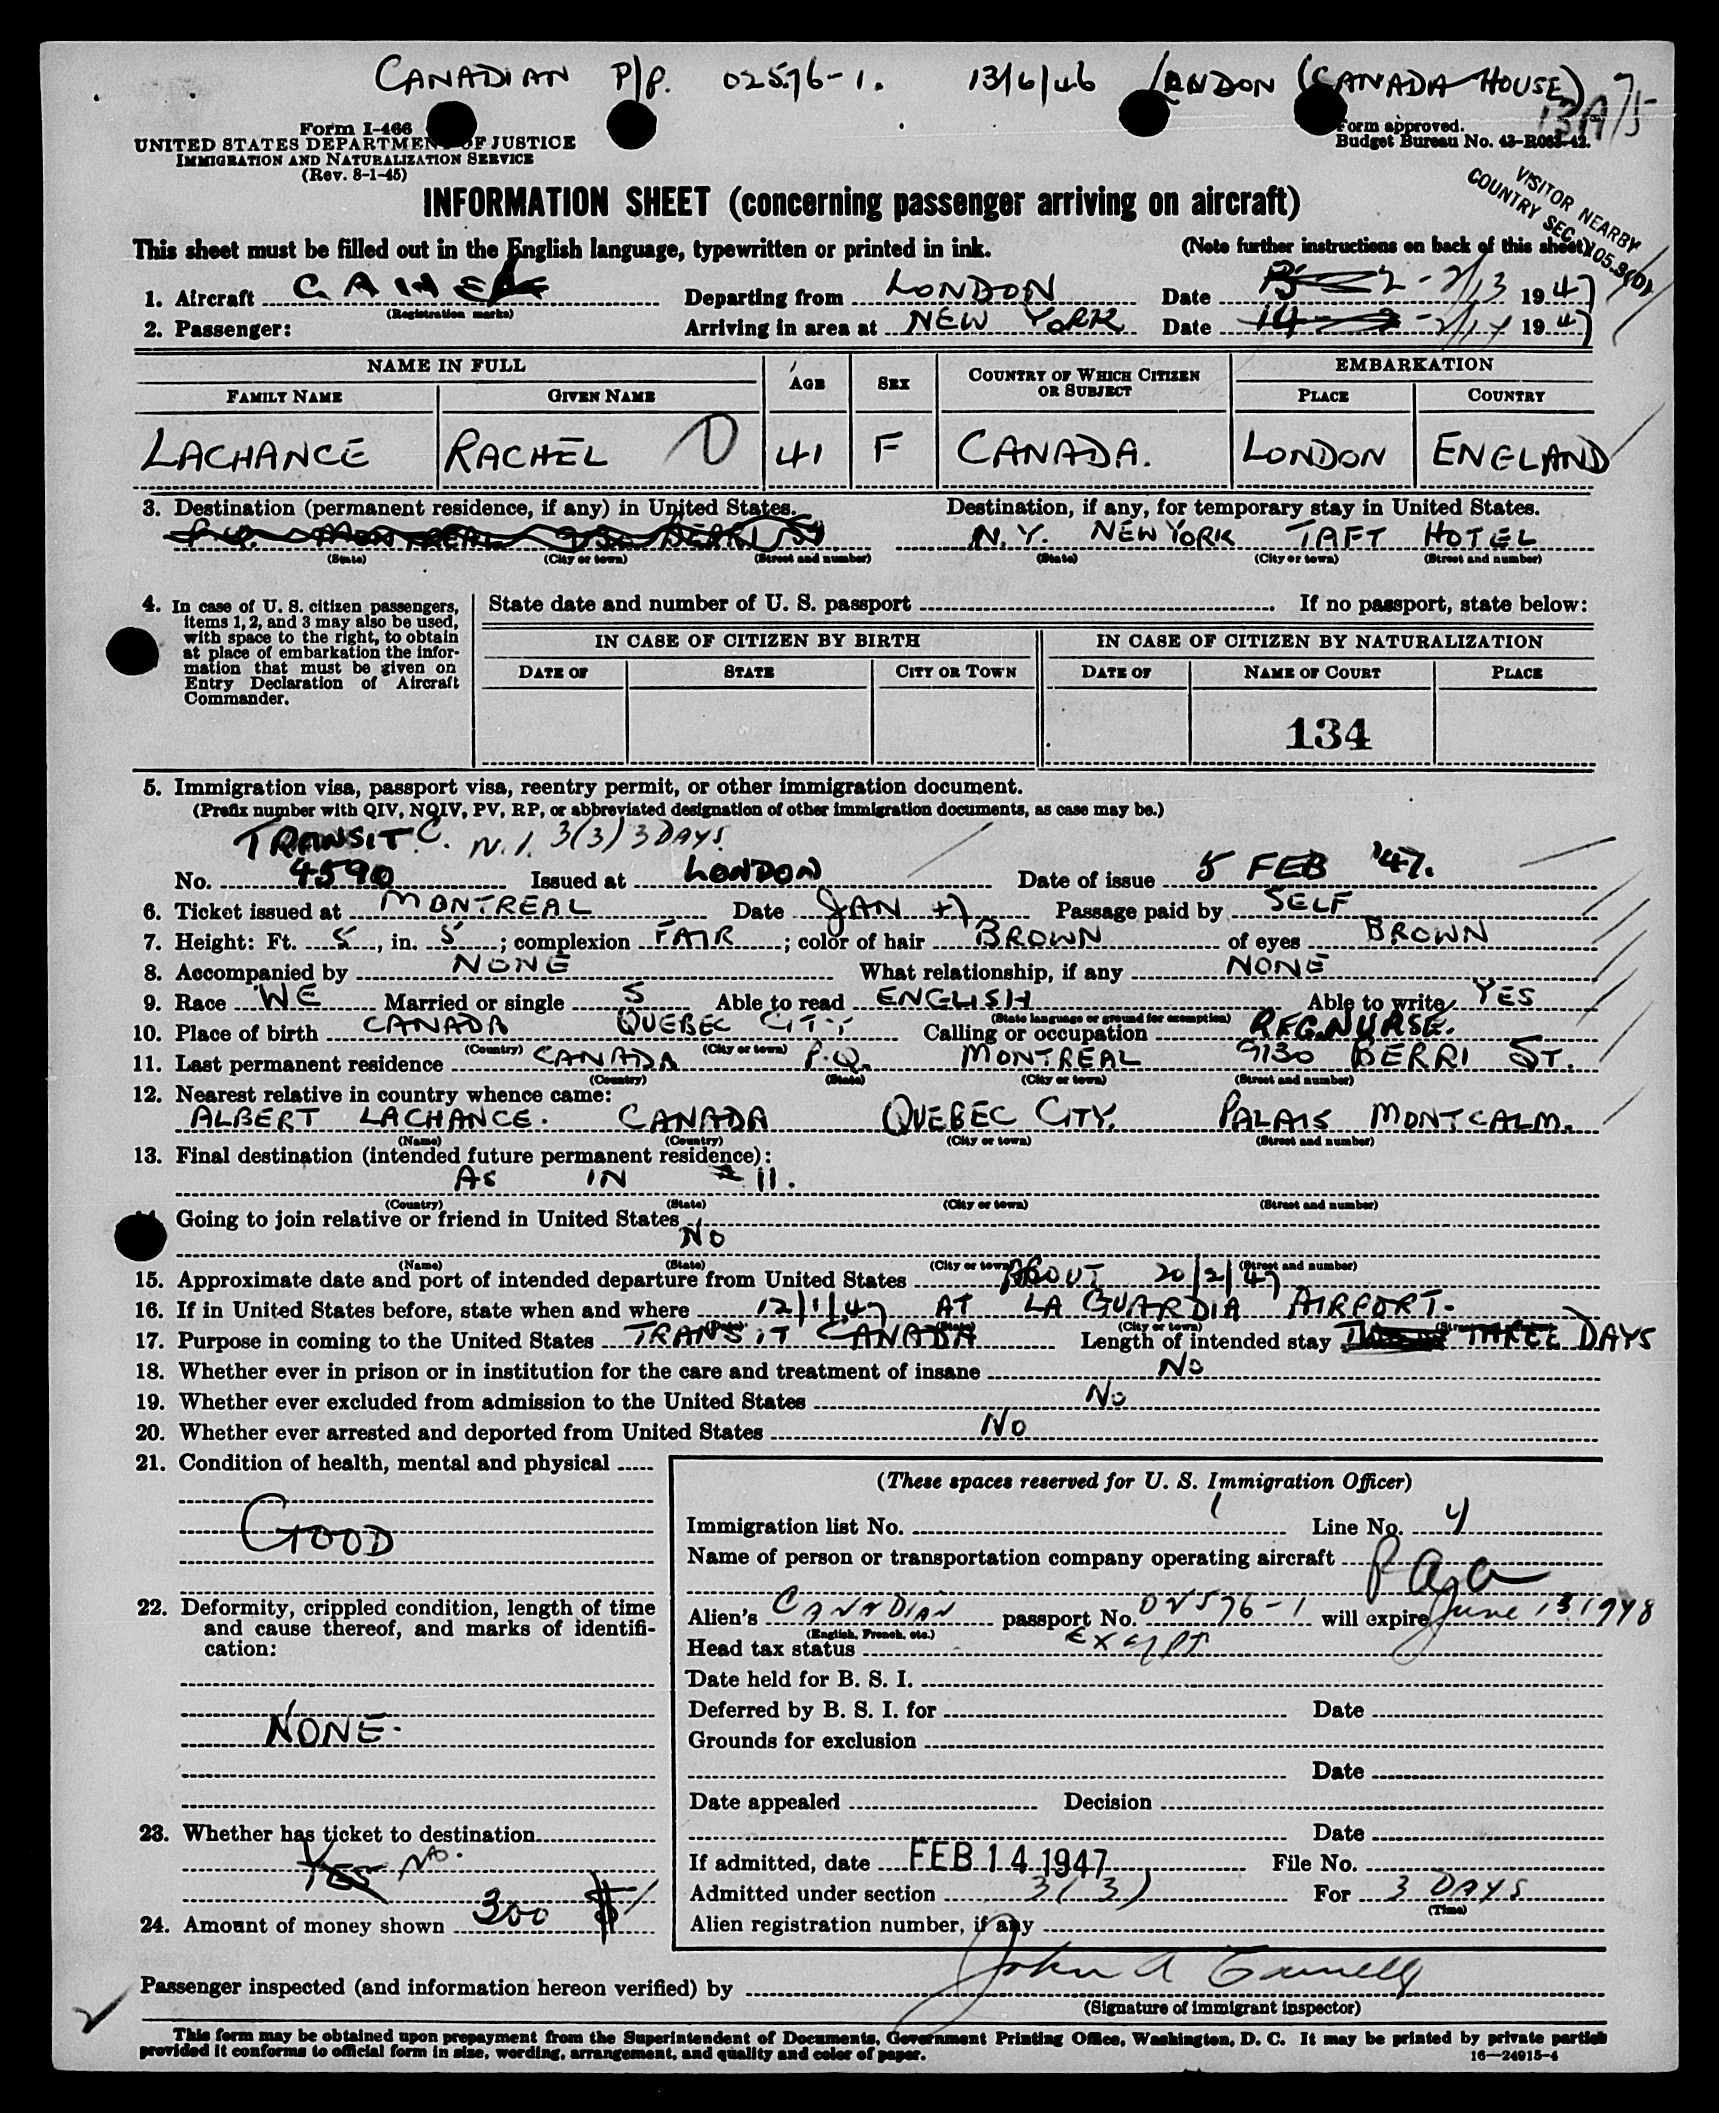 CANADIAN P/P. 02576-1. 13/6/46 LONDON (CANADA HOUSE)
13A/5
Form I-466
UNITED STATES DEPARTMENT OF JUSTICE
IMMIGRATION AND NATURALIZATION SERVICE
(Rev. 8-1-45)
Form approved.
Budget Bureau No. 43-R063-42.
VISITOR NEARBY
COUNTRY SEC. 105.3(D)
INFORMATION SHEET (concerning passenger arriving on aircraft)
This sheet must be filled out in the English language, typewritten or printed in ink. (Note further instructions on back of this sheet)
1. Aircraft Departing from LONDON Date 2/13 1947
(Registration marks)
2. Passenger: Arriving in area at NEW YORK Date 2/14 1947
NAME IN FULL AGE SEX COUNTRY OF WHICH CITIZEN OR SUBJECT EMBARKATION
FAMILY NAME GIVEN NAME PLACE COUNTRY
LACHANCE RACHEL 41 F CANADA. LONDON ENGLAND
3. Destination (permanent residence, if any) in United States. Destination, if any, for temporary stay in United States.
P.Q. MONTREAL 9130 BERRI ST N.Y. NEW YORK TAFT HOTEL
(State) (City or town) (Street and number) (State) (City or town) (Street and number)
4. In case of U. S. citizen passengers, items 1, 2, and 3 may also be used, with space to the right, to obtain at place of embarkation the information that must be given on Entry Declaration of Aircraft Commander.
State date and number of U. S. passport . If no passport, state below:
IN CASE OF CITIZEN BY BIRTH IN CASE OF CITIZEN BY NATURALIZATION
DATE OF STATE CITY OR TOWN DATE OF NAME OF COURT PLACE
134
5. Immigration visa, passport visa, reentry permit, or other immigration document.
(Prefix number with QIV, NQIV, PV, RP, or abbreviated designation of other immigration documents, as case may be.)
TRANSIT C. N.I. 3(3) 3 DAYS.
No. 4590 Issued at LONDON Date of issue 5 FEB '47.
6. Ticket issued at MONTREAL Date JAN 47 Passage paid by SELF
7. Height: Ft. 5, in. 5; complexion FAIR; color of hair BROWN of eyes BROWN
8. Accompanied by NONE What relationship, if any NONE
9. Race WE Married or single S Able to read ENGLISH Able to write YES
(State language or ground for exemption)
10. Place of birth CANADA QUEBEC CITY Calling or occupation REG. NURSE.
(Country) (City or town)
11. Last permanent residence CANADA P.Q. MONTREAL 9130 BERRI ST.
(Country) (State) (City or town) (Street and number)
12. Nearest relative in country whence came:
ALBERT LACHANCE. CANADA QUEBEC CITY. PALAIS MONTCALM.
(Name) (Country) (City or town) (Street and number)
13. Final destination (intended future permanent residence):
AS IN # 11.
(Country) (State) (City or town) (Street and number)
Going to join relative or friend in United States
NO
(Name) (State) (City or town) (Street and number)
15. Approximate date and port of intended departure from United States ABOUT 20/2/47
16. If in United States before, state when and where 12/1/47 AT LA GUARDIA AIRPORT.
(Date) (State) (City or town) (Street and number)
17. Purpose in coming to the United States TRANSIT CANADA Length of intended stay THREE DAYS
18. Whether ever in prison or in institution for the care and treatment of insane NO
19. Whether ever excluded from admission to the United States NO
20. Whether ever arrested and deported from United States NO
21. Condition of health, mental and physical
GOOD
22. Deformity, crippled condition, length of time and cause thereof, and marks of identification:
NONE.
23. Whether has ticket to destination
YES NO.
24. Amount of money shown 300 $
(These spaces reserved for U. S. Immigration Officer)
Immigration list No. 1 Line No. 4
Name of person or transportation company operating aircraft P A a
Alien's CANADIAN passport No. 02576-1 will expire June 13 1948
(English, French, etc.)
Head tax status exempt
Date held for B. S. I.
Deferred by B. S. I. for Date
Grounds for exclusion
Date
Date appealed Decision
Date
If admitted, date FEB 14 1947 File No.
Admitted under section 3(3) For 3 DAYS
(Time)
Alien registration number, if any
Passenger inspected (and information hereon verified) by John A
(Signature of immigrant inspector)
This form may be obtained upon prepayment from the Superintendent of Documents, Government Printing Office, Washington, D. C. It may be printed by private parties
provided it conforms to official form in size, wording, arrangement, and quality and color of paper.
16—24915-4